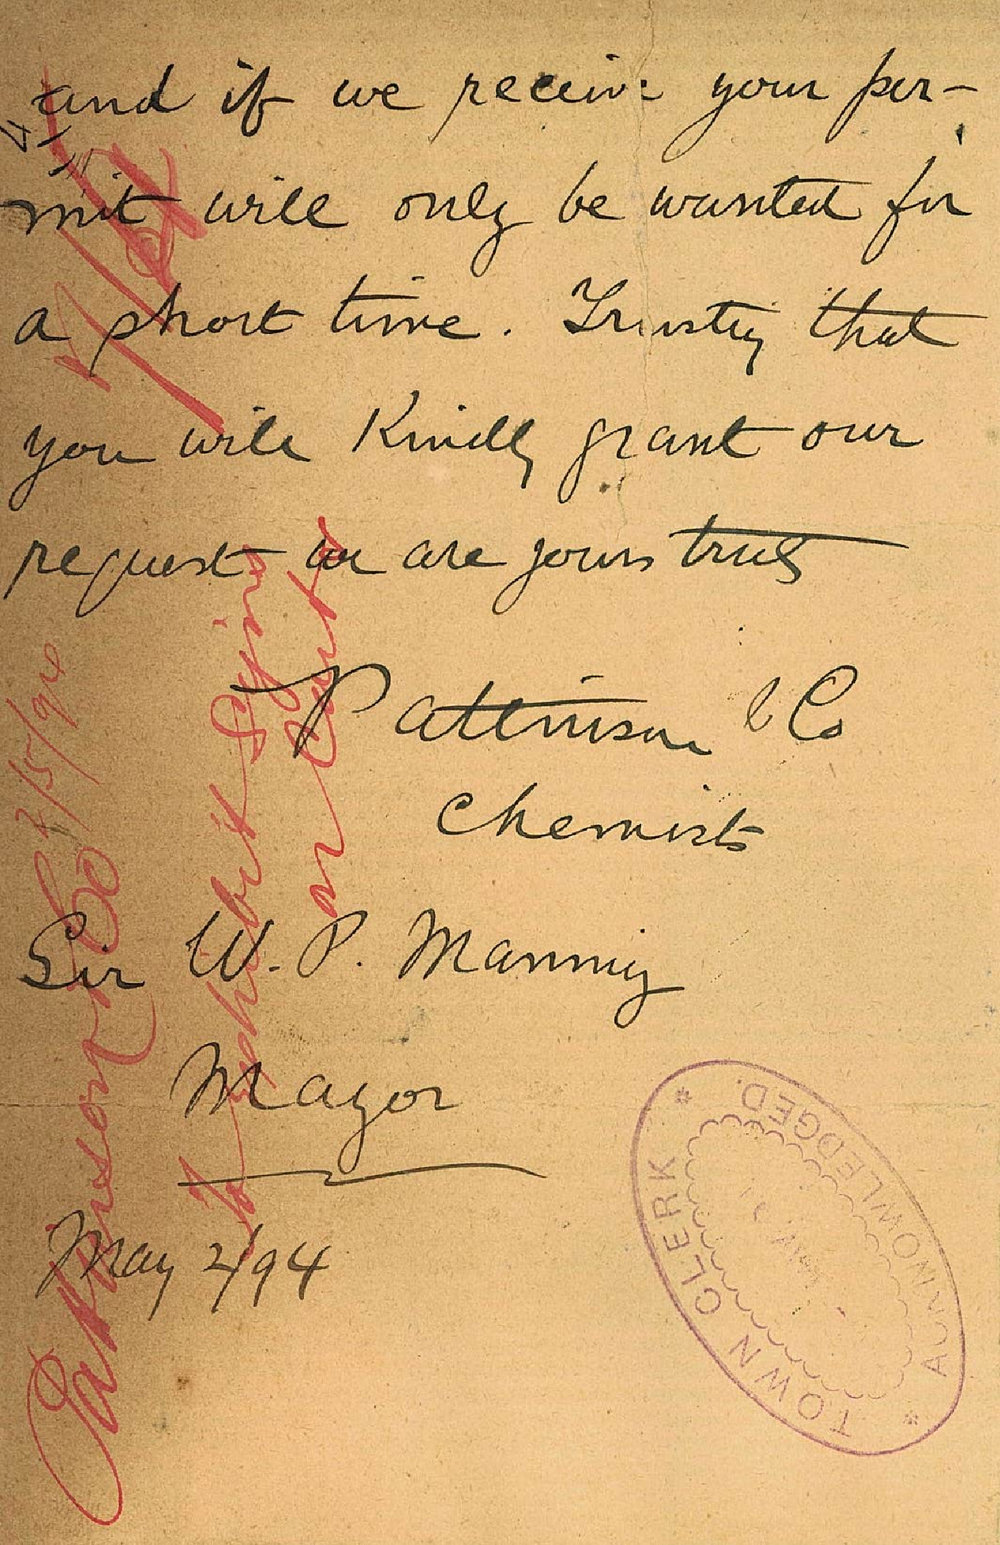 and if we receive your per-
mit will only be wanted for
a short time. Trusting that
you will Kindly grant our
request we are yours truly
Pattinson & Co
Chemists
Sir W. P. Manning
Mayor
May 2/94
Pattinson & Co 2/5/94
To exhibit Signs
on Carts
TOWN CLERK
* ACKNOWLEDGED. *
MAY